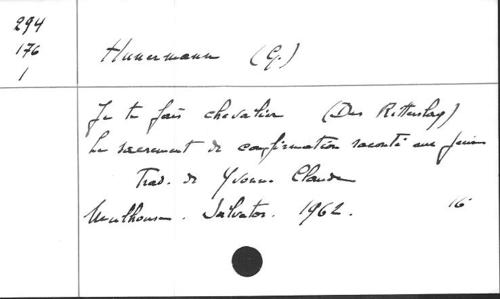 294
176
1
Hunermann (G.)
Je te fais chevalier (Der Ritterschlag)
Le sacrement de confirmation raconté aux jeunes
Trad. de Yvonne Claude
Mulhouse. Salvator. 1962. 16°